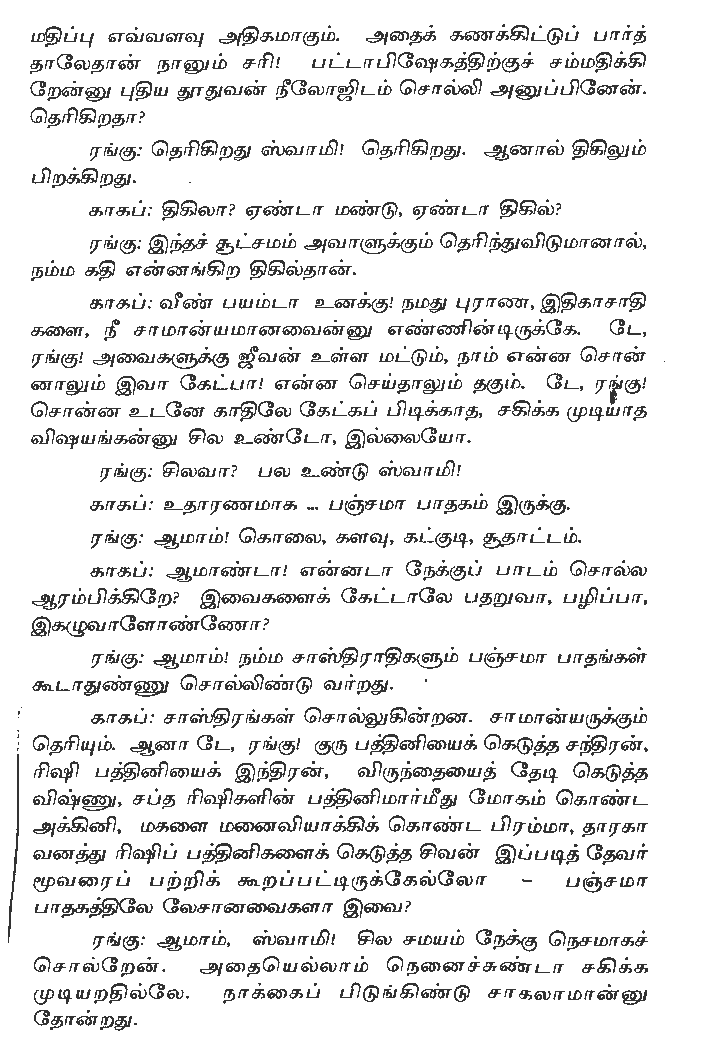 மதிப்பு எவ்வளவு அதிகமாகும். அதைக் கணக்கிட்டுப் பார்த்
தாலேதான் நானும் சரி! பட்டாபிஷேகத்திற்குச் சம்மதிக்கி
றேன்னு புதிய தூதுவன் நீலோஜிடம் சொல்லி அனுப்பினேன்.
தெரிகிறதா?
ரங்கு: தெரிகிறது ஸ்வாமி! தெரிகிறது. ஆனால் திகிலும்
பிறக்கிறது.
காகப்: திகிலா? ஏண்டா மண்டு, ஏண்டா திகில்?
ரங்கு: இந்தச் சூட்சமம் அவாளுக்கும் தெரிந்துவிடுமானால்,
நம்ம கதி என்னங்கிற திகில்தான்.
காகப்: வீண் பயம்டா உனக்கு! நமது புராண, இதிகாசாதி
களை, நீ சாமான்யமானவைன்னு எண்ணிண்டிருக்கே. டே,
ரங்கு! அவைகளுக்கு ஜீவன் உள்ள மட்டும், நாம் என்ன சொன்
னாலும் இவா கேட்பா! என்ன செய்தாலும் தகும். டே, ரங்கு!
சொன்ன உடனே காதிலே கேட்கப் பிடிக்காத, சகிக்க முடியாத
விஷயங்கன்னு சில உண்டோ, இல்லையோ.
ரங்கு: சிலவா? பல உண்டு ஸ்வாமி!
காகப்: உதாரணமாக ... பஞ்சமா பாதகம் இருக்கு.
ரங்கு: ஆமாம்! கொலை, களவு, கட்குடி, சூதாட்டம்.
காகப்: ஆமாண்டா! என்னடா நேக்குப் பாடம் சொல்ல
ஆரம்பிக்கிறே? இவைகளைக் கேட்டாலே பதறுவா, பழிப்பா,
இகழுவாளோண்ணோ?
ரங்கு: ஆமாம்! நம்ம சாஸ்திராதிகளும் பஞ்சமா பாதங்கள்
கூடாதுண்ணு சொல்லிண்டு வர்றது.
காகப்: சாஸ்திரங்கள் சொல்லுகின்றன. சாமான்யருக்கும்
தெரியும். ஆனா டே, ரங்கு! குரு பத்தினியைக் கெடுத்த சந்திரன்,
ரிஷி பத்தினியைக் இந்திரன், விருந்தையைத் தேடி கெடுத்த
விஷ்ணு, சப்த ரிஷிகளின் பத்தினிமார்மீது மோகம் கொண்ட
அக்கினி, மகளை மனைவியாக்கிக் கொண்ட பிரம்மா, தாரகா
வனத்து ரிஷிப் பத்தினிகளைக் கெடுத்த சிவன் இப்படித் தேவர்
மூவரைப் பற்றிக் கூறப்பட்டிருக்கேல்லோ – பஞ்சமா
பாதகத்திலே லேசானவைகளா இவை?
ரங்கு: ஆமாம், ஸ்வாமி! சில சமயம் நேக்கு நெசமாகச்
சொல்றேன். அதையெல்லாம் நெனைச்சுண்டா சகிக்க
முடியறதில்லே. நாக்கைப் பிடுங்கிண்டு சாகலாமான்னு
தோன்றது.